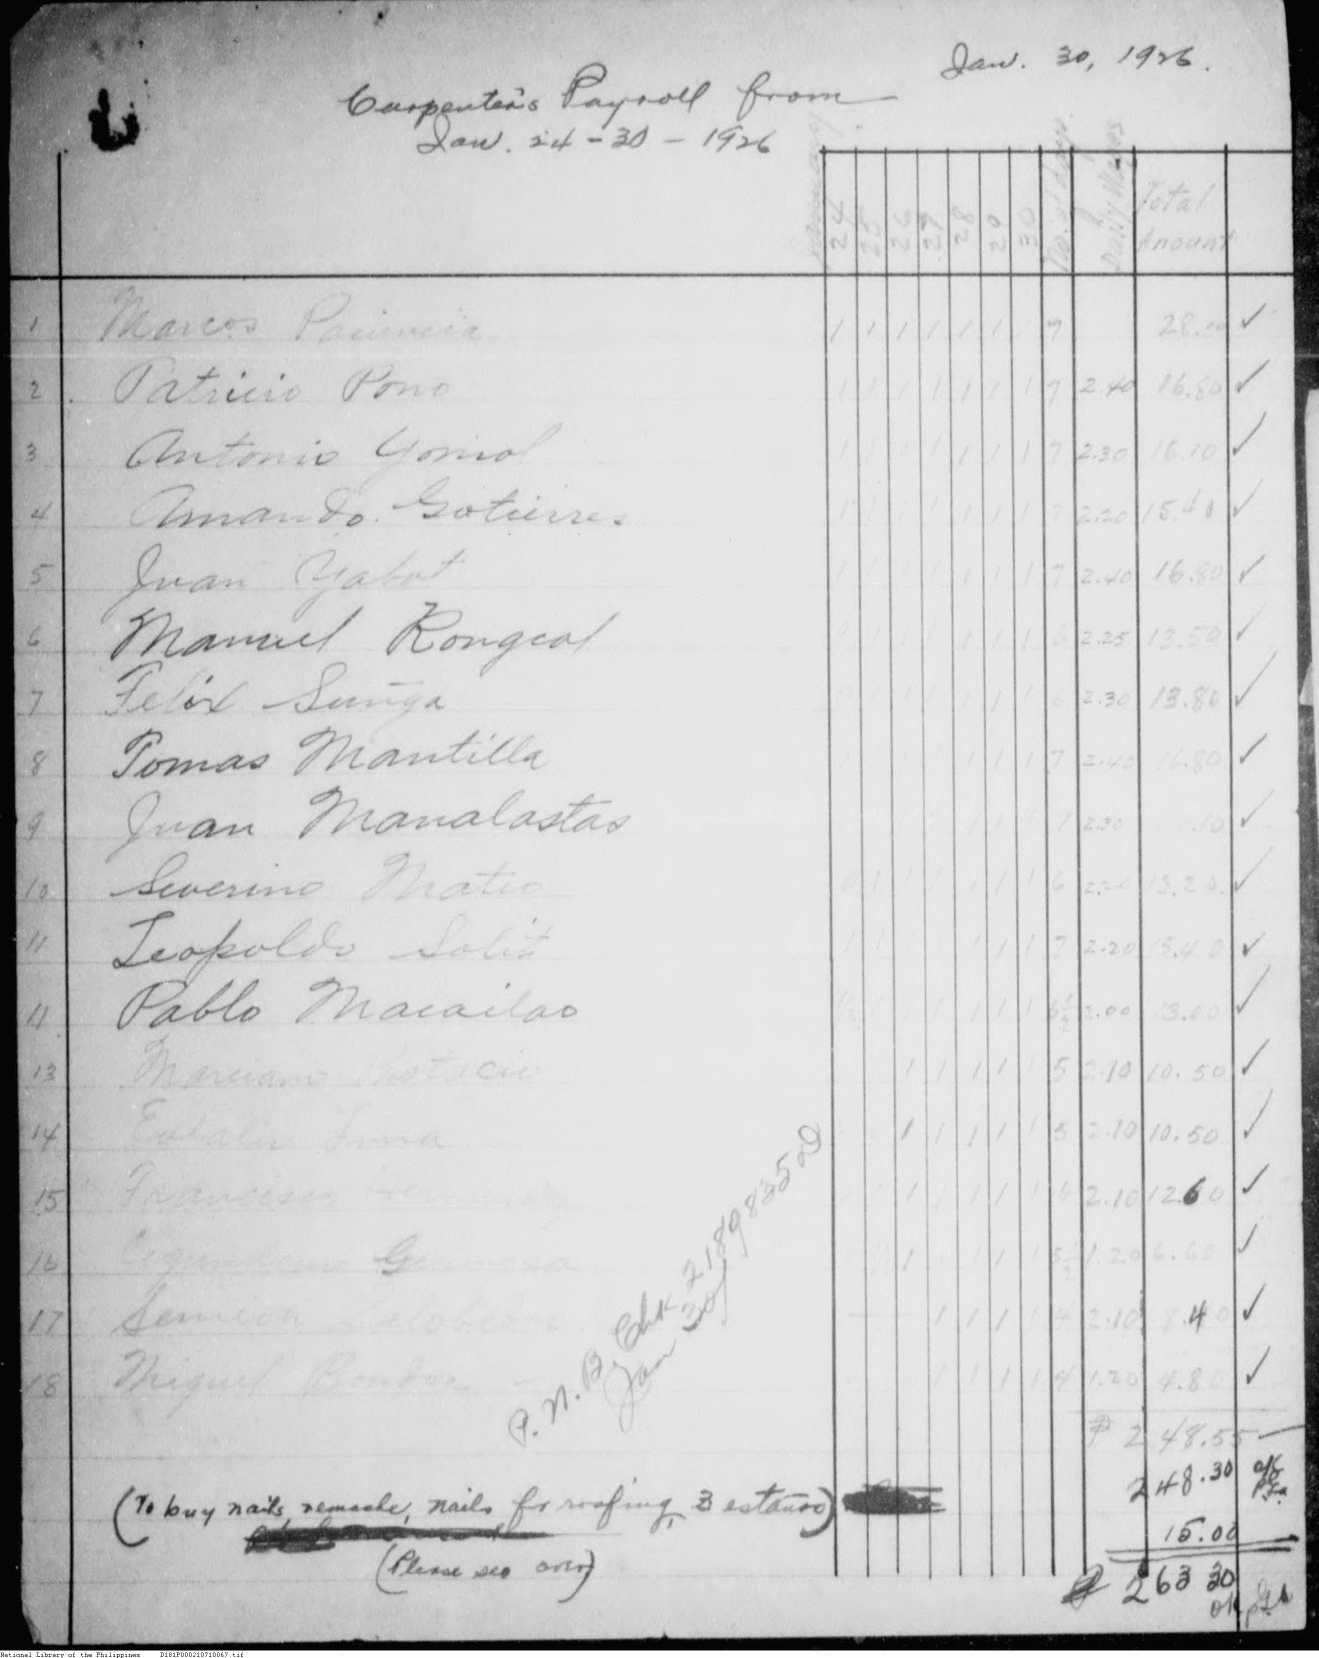 Jan. 30, 1926.
Carpenter's Payroll from
Jan. 24-30-1926
24 25 26 27 28 29 30 No. of days Daily Wages Total Amount
1 Marcos 1 1 1 1 1 1 1 7 28.00 ✓
2 Patricio Pono 1 1 1 1 1 1 1 7 2.40 16.80 ✓
3 Antonio 1 1 1 1 1 1 7 2.30 16.10 ✓
4 Amando Gotierres 1 1 1 1 1 1 7 2.20 15.40 ✓
5 Juan Yabot 1 1 1 1 1 1 7 2.40 16.80 ✓
6 Manuel Rongcal 1 1 1 1 1 1 6 2.25 13.50 ✓
7 Felix Suñga 1 1 1 1 6 2.30 13.80 ✓
8 Tomas Mantilla 1 1 1 1 7 2.40 16.80 ✓
9 Juan Manalastas 1 1 1 7 2.30 .10 ✓
10 Severino Mateo 0 1 1 1 1 1 1 6 2.20 13.20 ✓
11 Leopoldo Solis 1 1 1 1 1 7 2.20 15.40 ✓
11 Pablo Macailao 1 1 1 1 1 6½ 2.00 13.00 ✓
13 Marciano 1 1 1 1 1 5 2.10 10.50 ✓
14 Eulalio 1 1 1 1 1 5 2.10 10.50 ✓
15 Francisco 1 1 1 1 1 6 2.10 12.60 ✓
16 1 1 1 1 5½ 1.20 6.60 ✓
17 Simeon - - 1 1 1 1 4 2.10 8.40 ✓
18 Miguel 1 1 1 1 4 1.20 4.80 ✓
P.N.B. Chk 21898352D
Jan 30/
₱ 248.55
248.30 ok
(To buy nails, remache, nails for roofing, 3 estaños) 15.00
(Please see over)
₱ 263 30
ok
National Library of the Philippines D181P000210710067.tif